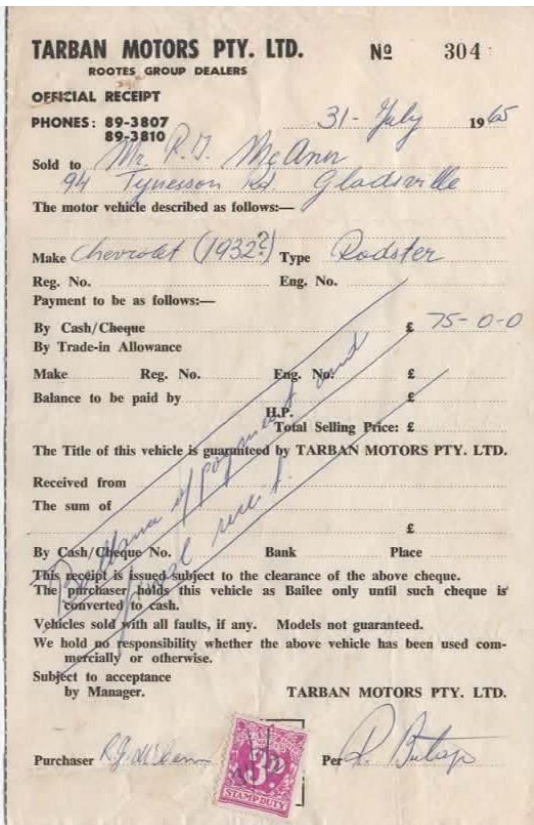 TARBAN MOTORS PTY. LTD. Nº 304
ROOTES GROUP DEALERS
OFFICIAL RECEIPT
PHONES: 89-3807
89-3810
31 - July 1965
Sold to Mr R.J. McAnn
94 Rd. Gladsville
The motor vehicle described as follows:—
Make Chevrolet (1932?) Type Rodster
Reg. No. Eng. No.
Payment to be as follows:—
By Cash/Cheque £ 75-0-0
By Trade-in Allowance
Make Reg. No. Eng. No. £
Balance to be paid by £
H.P.
Total Selling Price: £
The Title of this vehicle is guaranteed by TARBAN MOTORS PTY. LTD.
Received from
The sum of
£
By Cash/Cheque No. Bank Place
This receipt is issued subject to the clearance of the above cheque.
The purchaser holds this vehicle as Bailee only until such cheque is
converted to cash.
Vehicles sold with all faults, if any. Models not guaranteed.
We hold no responsibility whether the above vehicle has been used com-
mercially or otherwise.
Subject to acceptance
by Manager. TARBAN MOTORS PTY. LTD.
Purchaser Per
3D
STAMP DUTY
of payment and
final